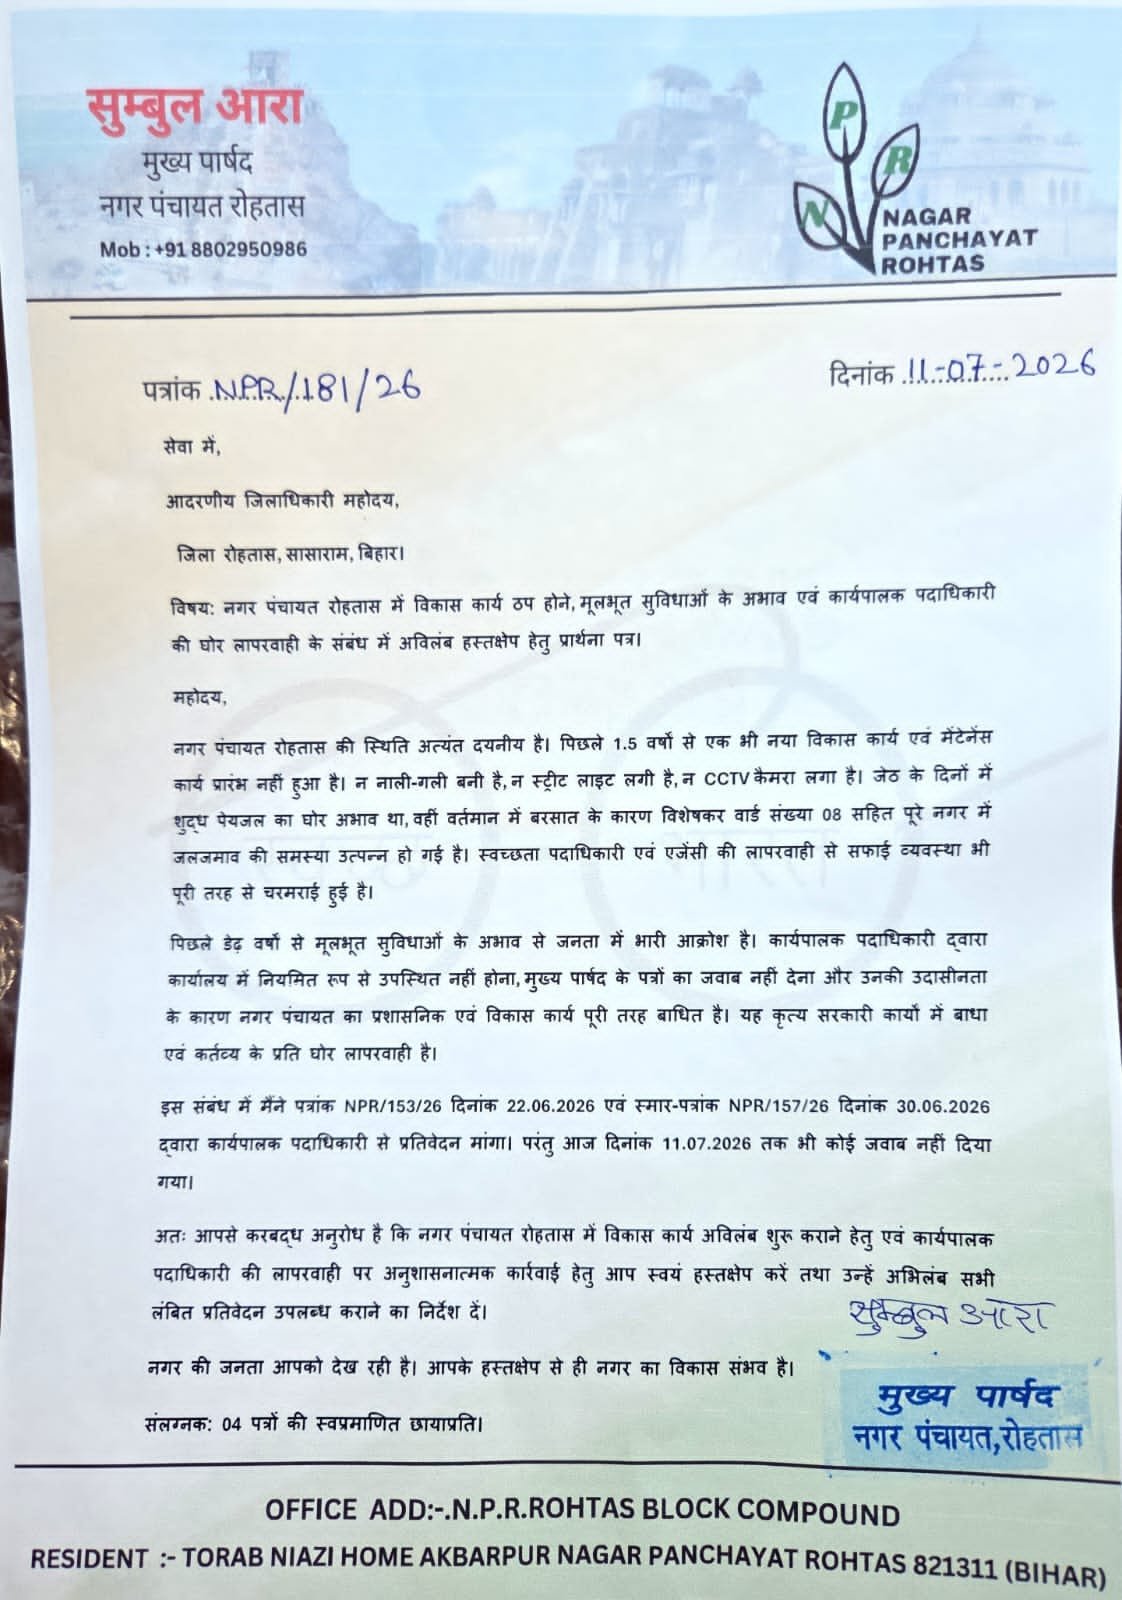 सुम्बुल आरा
मुख्य पार्षद
नगर पंचायत रोहतास
Mob : +91 8802950986
P
R
N
NAGAR
PANCHAYAT
ROHTAS
पत्रांक NPR/181/26
दिनांक 11-07-2026
सेवा में,
आदरणीय जिलाधिकारी महोदय,
जिला रोहतास, सासाराम, बिहार।
विषय: नगर पंचायत रोहतास में विकास कार्य ठप होने, मूलभूत सुविधाओं के अभाव एवं कार्यपालक पदाधिकारी
की घोर लापरवाही के संबंध में अविलंब हस्तक्षेप हेतु प्रार्थना पत्र।
महोदय,
नगर पंचायत रोहतास की स्थिति अत्यंत दयनीय है। पिछले 1.5 वर्षों से एक भी नया विकास कार्य एवं मेंटेनेंस
कार्य प्रारंभ नहीं हुआ है। न नाली-गली बनी है, न स्ट्रीट लाइट लगी है, न CCTV कैमरा लगा है। जेठ के दिनों में
शुद्ध पेयजल का घोर अभाव था, वहीं वर्तमान में बरसात के कारण विशेषकर वार्ड संख्या 08 सहित पूरे नगर में
जलजमाव की समस्या उत्पन्न हो गई है। स्वच्छता पदाधिकारी एवं एजेंसी की लापरवाही से सफाई व्यवस्था भी
पूरी तरह से चरमराई हुई है।
पिछले डेढ़ वर्षों से मूलभूत सुविधाओं के अभाव से जनता में भारी आक्रोश है। कार्यपालक पदाधिकारी द्वारा
कार्यालय में नियमित रूप से उपस्थित नहीं होना, मुख्य पार्षद के पत्रों का जवाब नहीं देना और उनकी उदासीनता
के कारण नगर पंचायत का प्रशासनिक एवं विकास कार्य पूरी तरह बाधित है। यह कृत्य सरकारी कार्यों में बाधा
एवं कर्तव्य के प्रति घोर लापरवाही है।
इस संबंध में मैंने पत्रांक NPR/153/26 दिनांक 22.06.2026 एवं स्मार-पत्रांक NPR/157/26 दिनांक 30.06.2026
द्वारा कार्यपालक पदाधिकारी से प्रतिवेदन मांगा। परंतु आज दिनांक 11.07.2026 तक भी कोई जवाब नहीं दिया
गया।
अतः आपसे करबद्ध अनुरोध है कि नगर पंचायत रोहतास में विकास कार्य अविलंब शुरू कराने हेतु एवं कार्यपालक
पदाधिकारी की लापरवाही पर अनुशासनात्मक कार्रवाई हेतु आप स्वयं हस्तक्षेप करें तथा उन्हें अभिलंब सभी
लंबित प्रतिवेदन उपलब्ध कराने का निर्देश दें।
सुम्बुल आरा
नगर की जनता आपको देख रही है। आपके हस्तक्षेप से ही नगर का विकास संभव है।
मुख्य पार्षद
नगर पंचायत, रोहतास
संलग्नक: 04 पत्रों की स्वप्रमाणित छायाप्रति।
OFFICE ADD:-.N.P.R.ROHTAS BLOCK COMPOUND
RESIDENT :- TORAB NIAZI HOME AKBARPUR NAGAR PANCHAYAT ROHTAS 821311 (BIHAR)